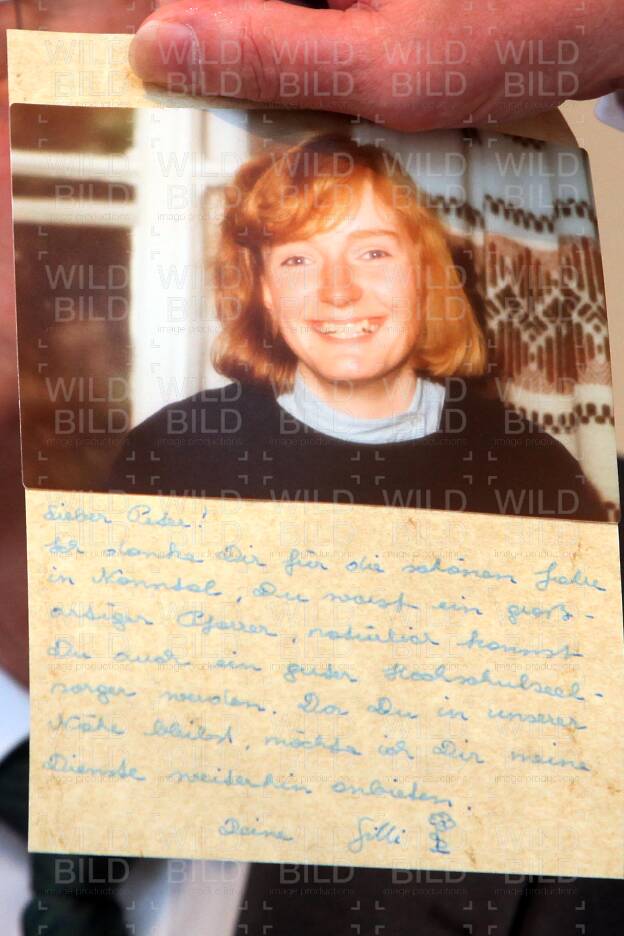 Lieber Peter!
Ich danke Dir für die schönen Jahre
in Nonntal, Du warst ein groß-
artiger Pfarrer, natürlich kannst
Du auch ein guter Hochschulseel-
sorger werden. Da Du in unserer
Nähe bleibst, möchte ich Dir meine
Dienste weiterhin anbieten.
Deine Gitti
WILD
BILD
image productions